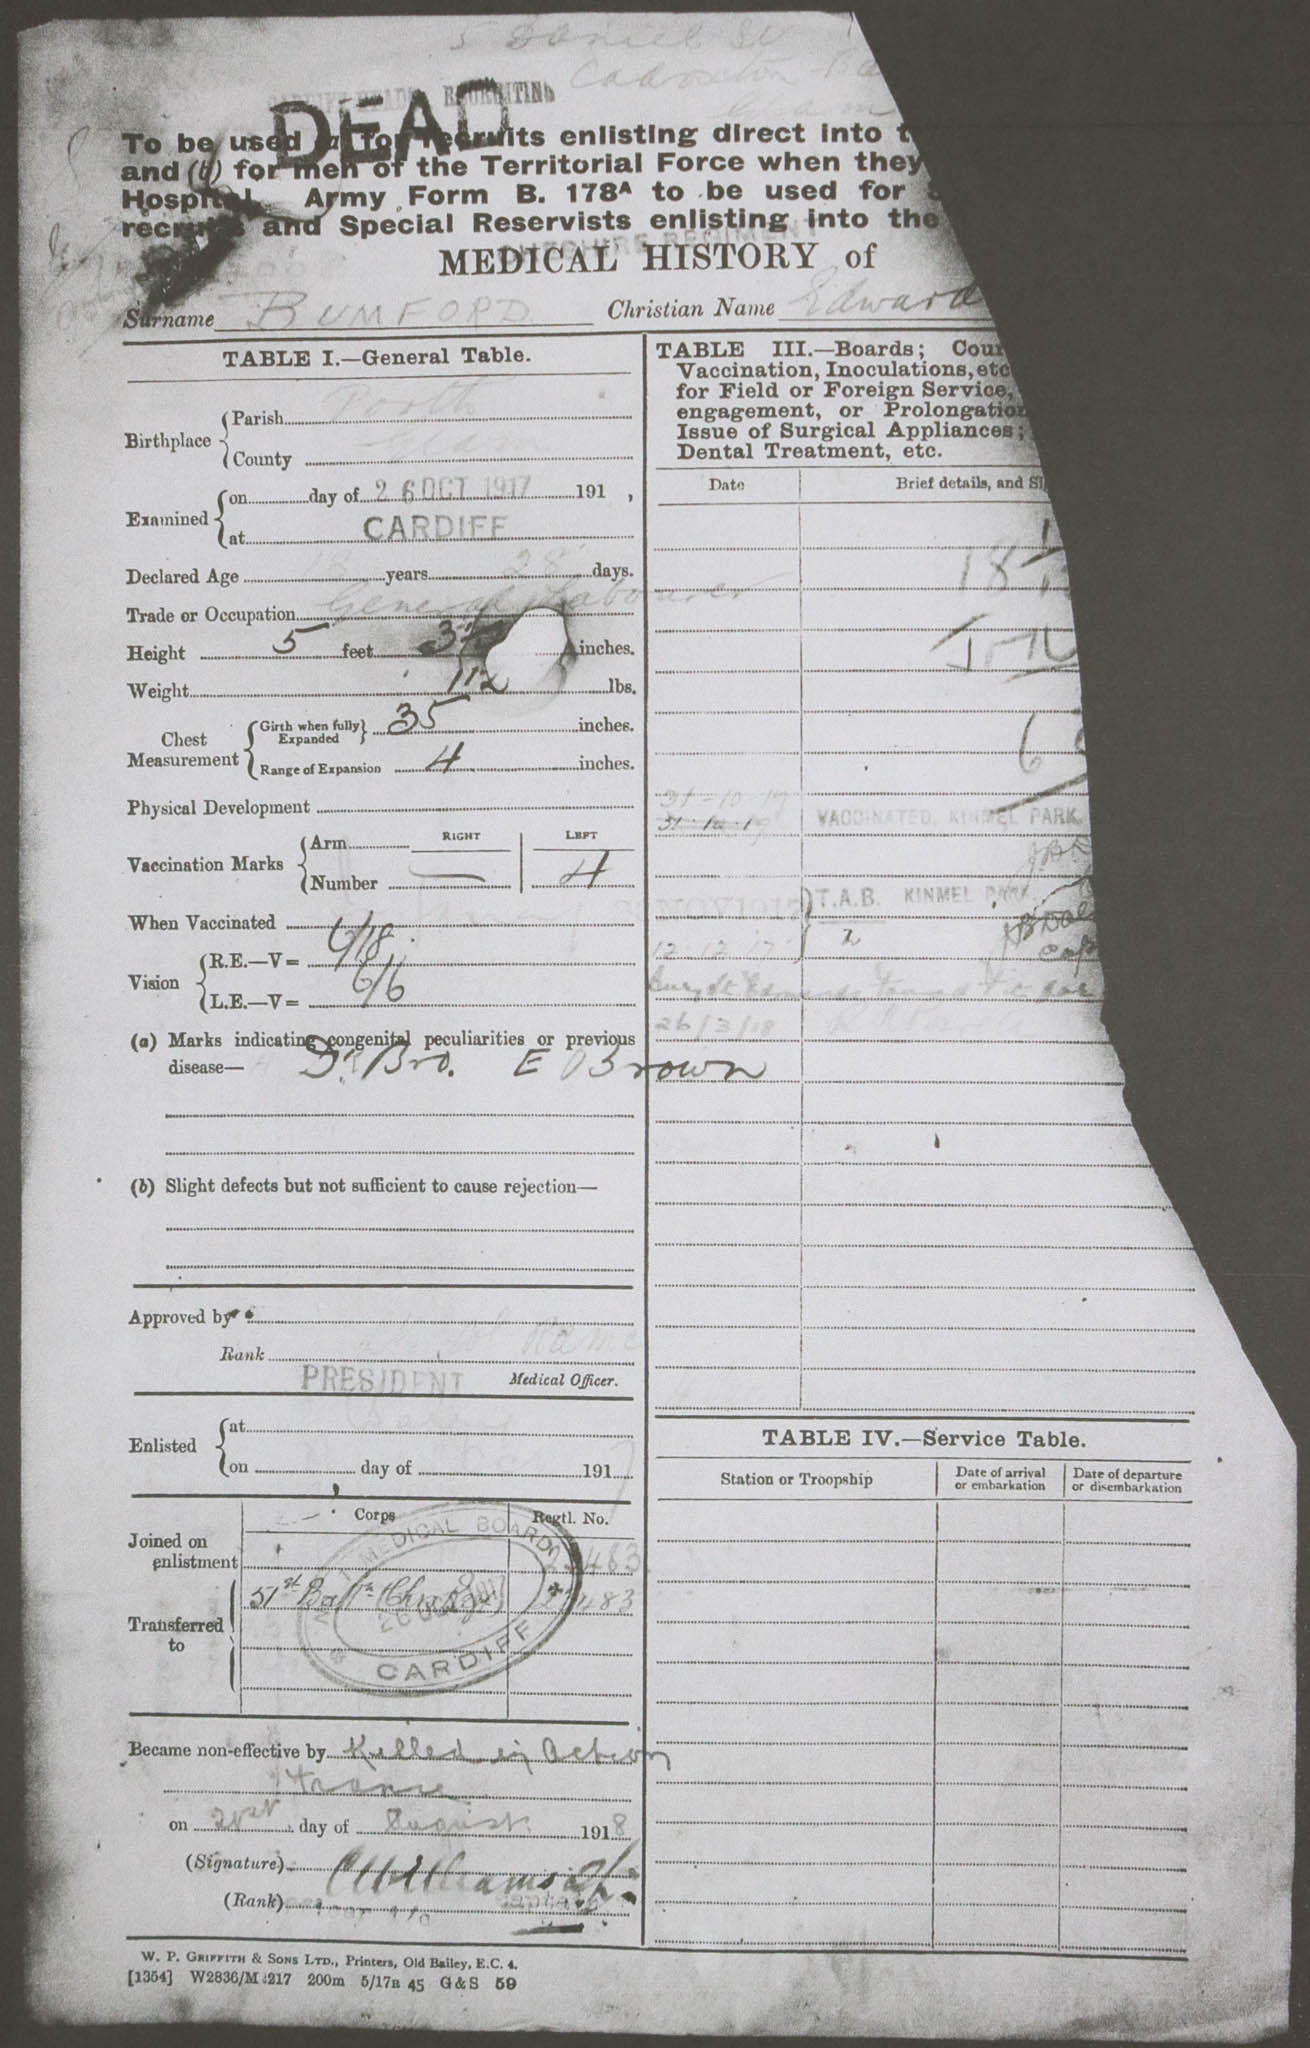 5 Daniel St
Cadoxton
DEAD
RECRUITING
To be used (a) for recruits enlisting direct into
and (b) for men of the Territorial Force when they
Hospital. Army Form B. 178A to be used for
recruits and Special Reservists enlisting into the
CHESHIRE REGIMENT
MEDICAL HISTORY of
Surname BUMFORD Christian Name Edward
TABLE I.—General Table.
Birthplace { Parish Porth
County Glam
Examined { on day of 26 OCT 1917 191 ,
at CARDIFF
Declared Age years 28 days.
Trade or Occupation General Labourer
Height 5 feet 3½ inches.
Weight 112 lbs.
Chest Measurement { Girth when fully Expanded } 35 inches.
Range of Expansion 4 inches.
Physical Development
Vaccination Marks { Arm RIGHT LEFT
Number — 4
When Vaccinated
Vision { R.E.—V= 6/18
L.E.—V= 6/6
(a) Marks indicating congenital peculiarities or previous
disease— Dr Bro. E Brown
(b) Slight defects but not sufficient to cause rejection—
Approved by
Rank
PRESIDENT Medical Officer.
Enlisted { at
on day of 191
Corps Regtl. No.
Joined on enlistment
Transferred to 51st Battn
MEDICAL BOARD
CARDIFF
Became non-effective by Killed in Action
France
on 21st day of August 1918
(Signature) Williams
(Rank) Captain
TABLE III.—Boards;
Vaccination, Inoculations, etc
for Field or Foreign Service,
engagement, or Prolongation
Issue of Surgical Appliances;
Dental Treatment, etc.
Date Brief details, and
31-10-17
31.10.17 VACCINATED, KINMEL PARK.
NOV 1917 } T.A.B. KINMEL PARK.
12.12.17 2
Bury St Edmunds
26/3/18
TABLE IV.—Service Table.
Station or Troopship Date of arrival or embarkation Date of departure or disembarkation
W. P. GRIFFITH & SONS LTD., Printers, Old Bailey, E.C. 4.
[1354] W2836/M 217 200m 5/17B 45 G & S 59